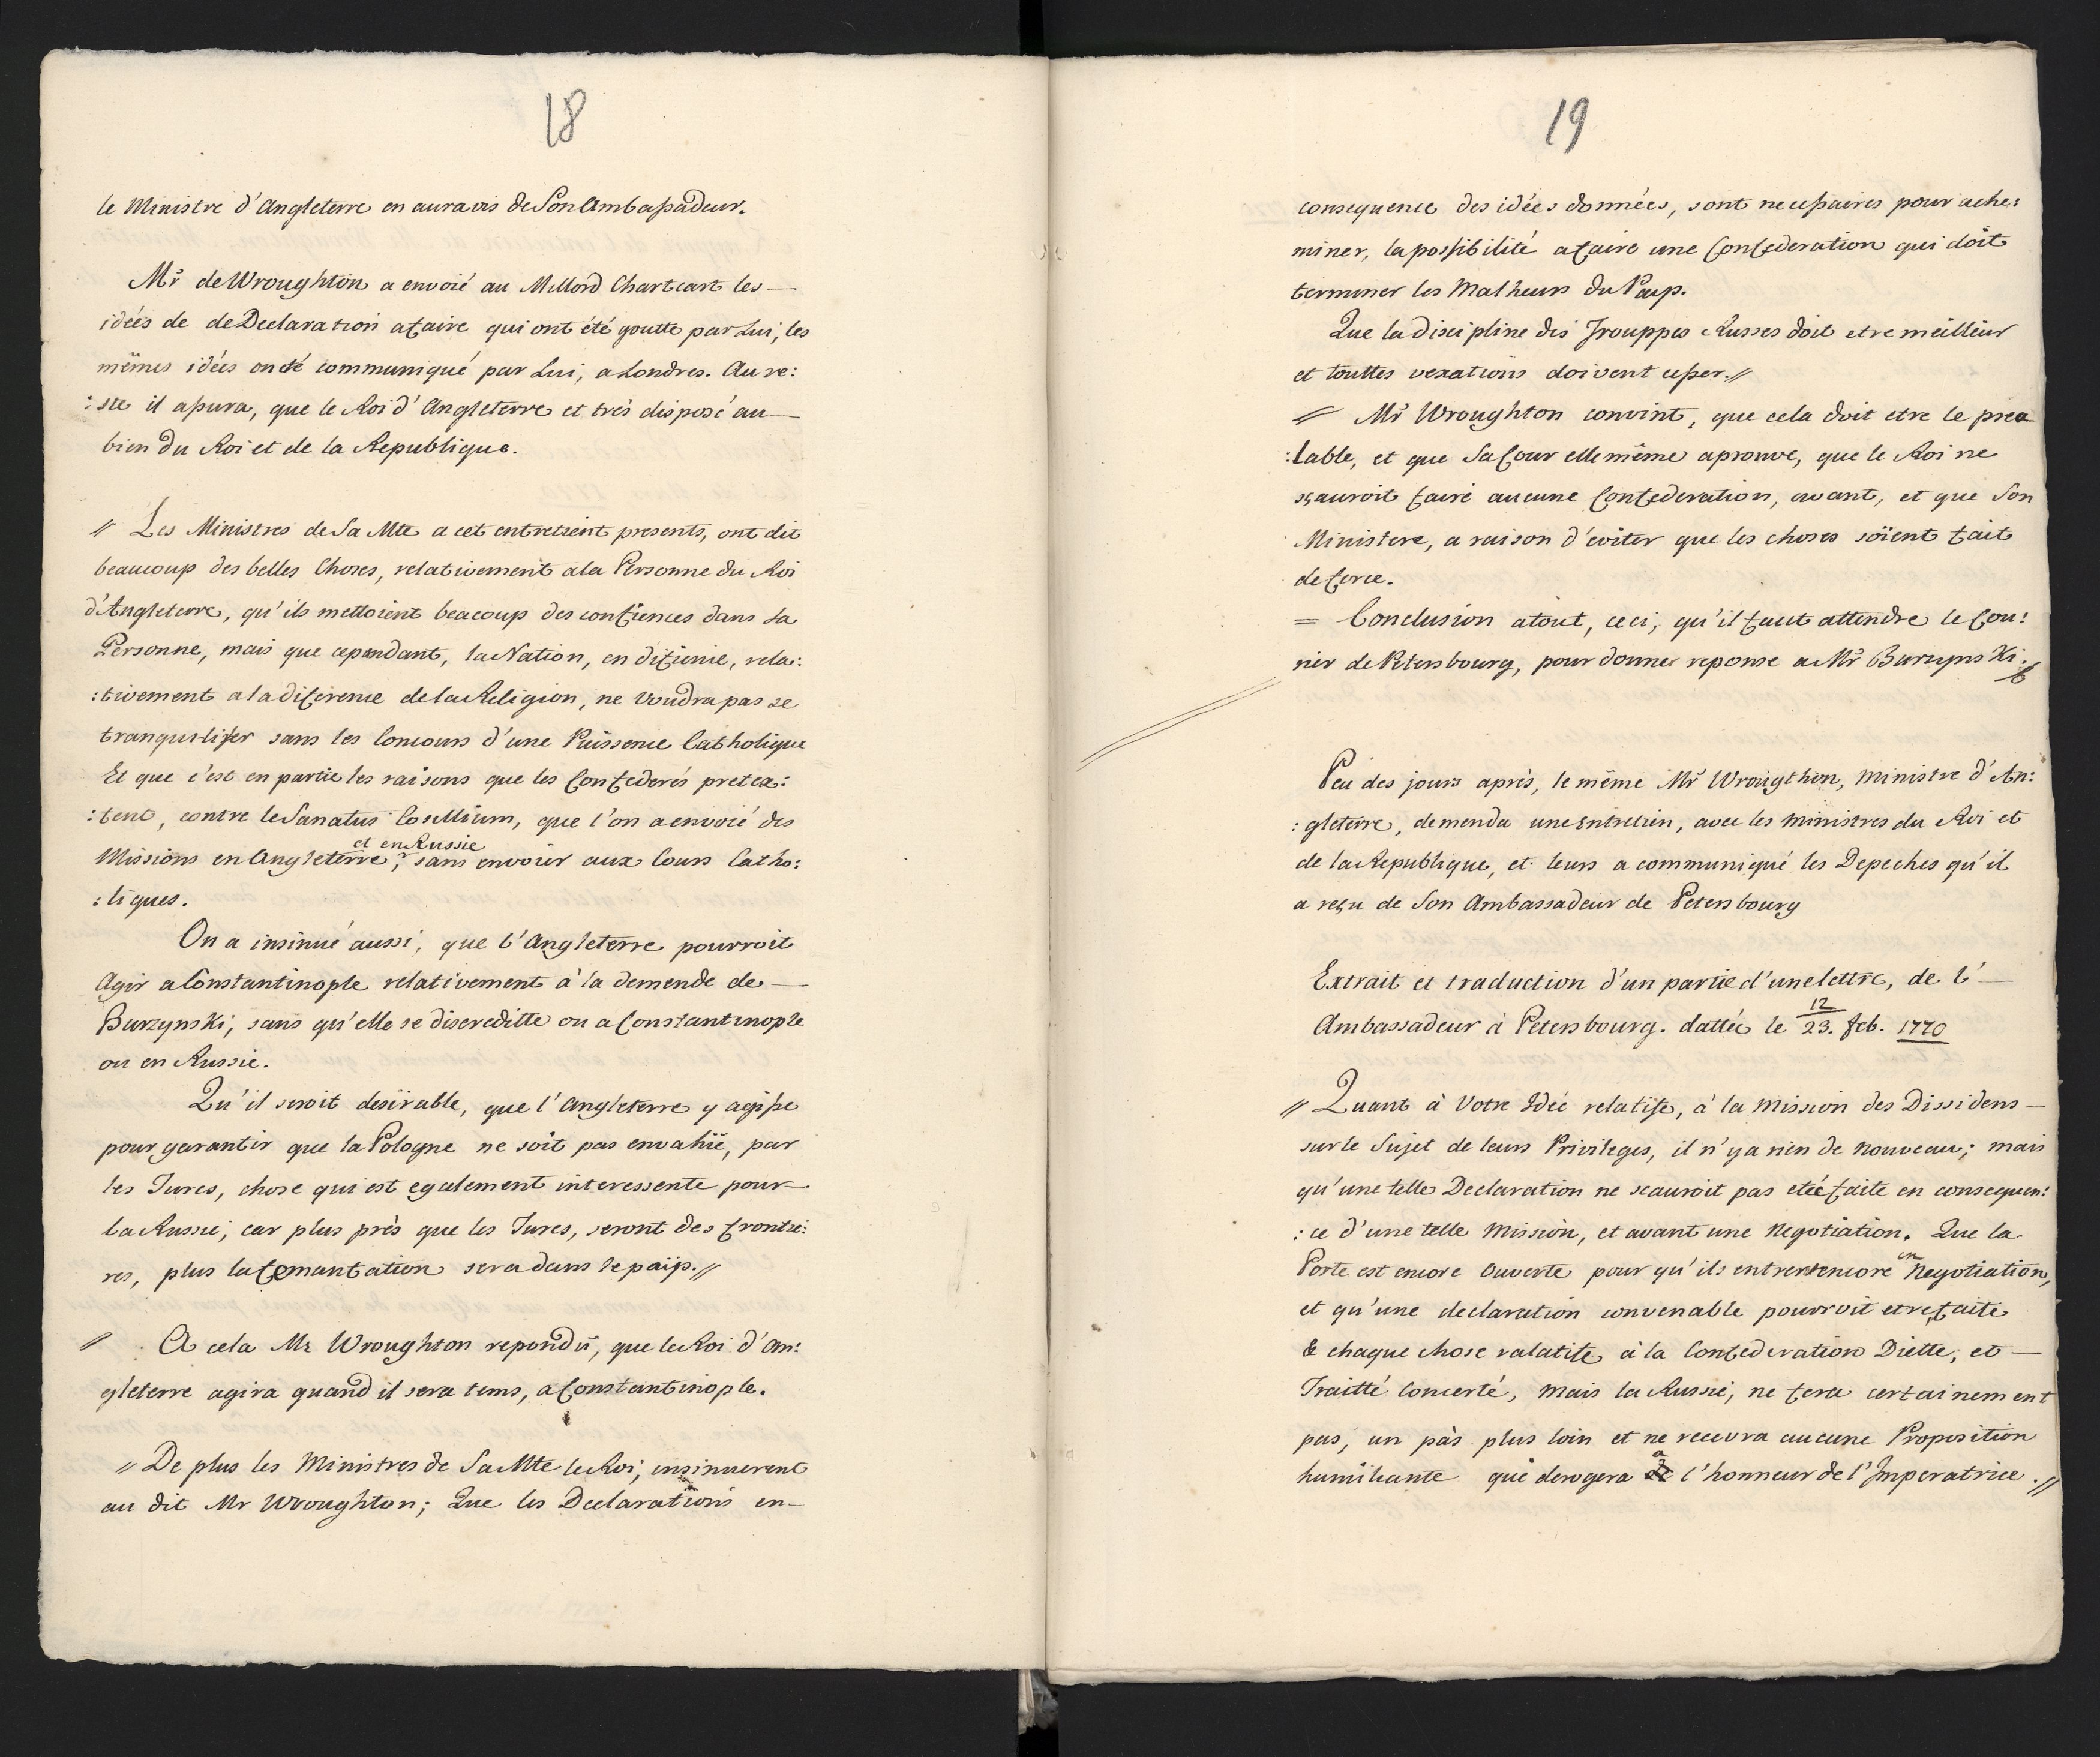 18
le Ministre d'Angleterre en aura avis de Son Ambassadeur.
Mr de Wroughton a envoié au Millord Chartcart les —
idées de de Declaration a faire qui ont été goutte par Lui, les
mêmes idées on été communiqué par Lui, a Londres. Au re:
:ste il assura, que le Roi d'Angleterre et très disposé au —
bien du Roi et de la Republique.
// Les Ministres de Sa Mte a cet entretient presents, ont dit
beaucoup des belles Choses, relativement a la Personne du Roi
d'Angleterre, qu'ils mettoient beacoup des confiences dans sa
Personne, mais que cependant, la Nation, en difience, rela:
:tivement a la diference de la Religion, ne voudra pas se
tranquiliser sans les Concours d'une Puissence Catholique
Et que c'est en partie les raisons que les Confederés pretex:
:tent, contre le Sanatus Consilium, que l'on a envoié des
Missions en Angleterre, et en Russie sans envoier aux Cours Catho:
:liques.
On a insinué aussi, que l'Angleterre pourroit
Agir a Constantinople relativement à la demende de —
Burzynski, sans qu'elle se discreditte ou a Constantinople
ou en Russie.
Qu'il seroit desirable, que l'Angleterre y agisse
pour garantir que la Pologne ne soit pas envahië, par
les Turcs, chose qui est egalement interessente pour —
la Russie, car plus près que les Turcs, seront des frontie:
res, plus la femantation sera dans le païs. //
// A cela Mr Wroughton repondit, que le Roi d'An:
gleterre agira quand il sera tems, a Constantinople.
// De plus les Ministres de Sa Mte le Roi, insinuerent
au dit Mr Wroughton; Que les Declarations en —
19
consequence des idées données, sont necessaires pour ache:
miner, la possibilité a faire une Confederation qui doit
terminer les Malheurs du Païs.
Que la discipline des Trouppes Russes doit etre meilleur
et touttes vexations doivent cesser. //
// Mr Wroughton convint, que cela doit etre le prea
:lable, et que Sa Cour elle même aprouve, que le Roi ne
sçauroit faire aucune Confederation, avant, et que Son
Ministere, a raison d'eviter que les choses soient fait
de force.
= Conclusion a tout, ceci, qu'il faut attendre le Cou:
rier de Petersbourg, pour donner reponse a Mr Burzynski.
Peu des jours après, le même Mr Wrougthon, ministre d'An:
:gleterre, demenda une Entretien, avec les ministres du Roi et
de la Republique, et leurs a communiqué les Depeches qu'il
a reçu de Son Ambassadeur de Petersbourg
Extrait et traduction d'un partie d'une lettre, de l' —
Ambassadeur à Petersbourg. dattée le 12/23. feb. 1770
// Quant à Votre Idée relatife, à la Mission des Dissidens —
sur le Sujet de leurs Privileges, il n'y a rien de nouveau; mais
qu'une telle Declaration ne scauroit pas etée faite en consequen:
:ce d'une telle Mission, et avant une Negotiation. Que la
Porte est encore Ouverte pour qu'ils entrent encore en Negotiation,
et qu'une declaration convenable pourroit etre faite
& chaque chose ralatife à la Confederation Diette, et —
Traitté Concerté, mais la Russie, ne fera certainement
pas, un pàs plus loin et ne recevra aucune Proposition
humiliante que derogera à l'honneur de l'Imperatrice. //